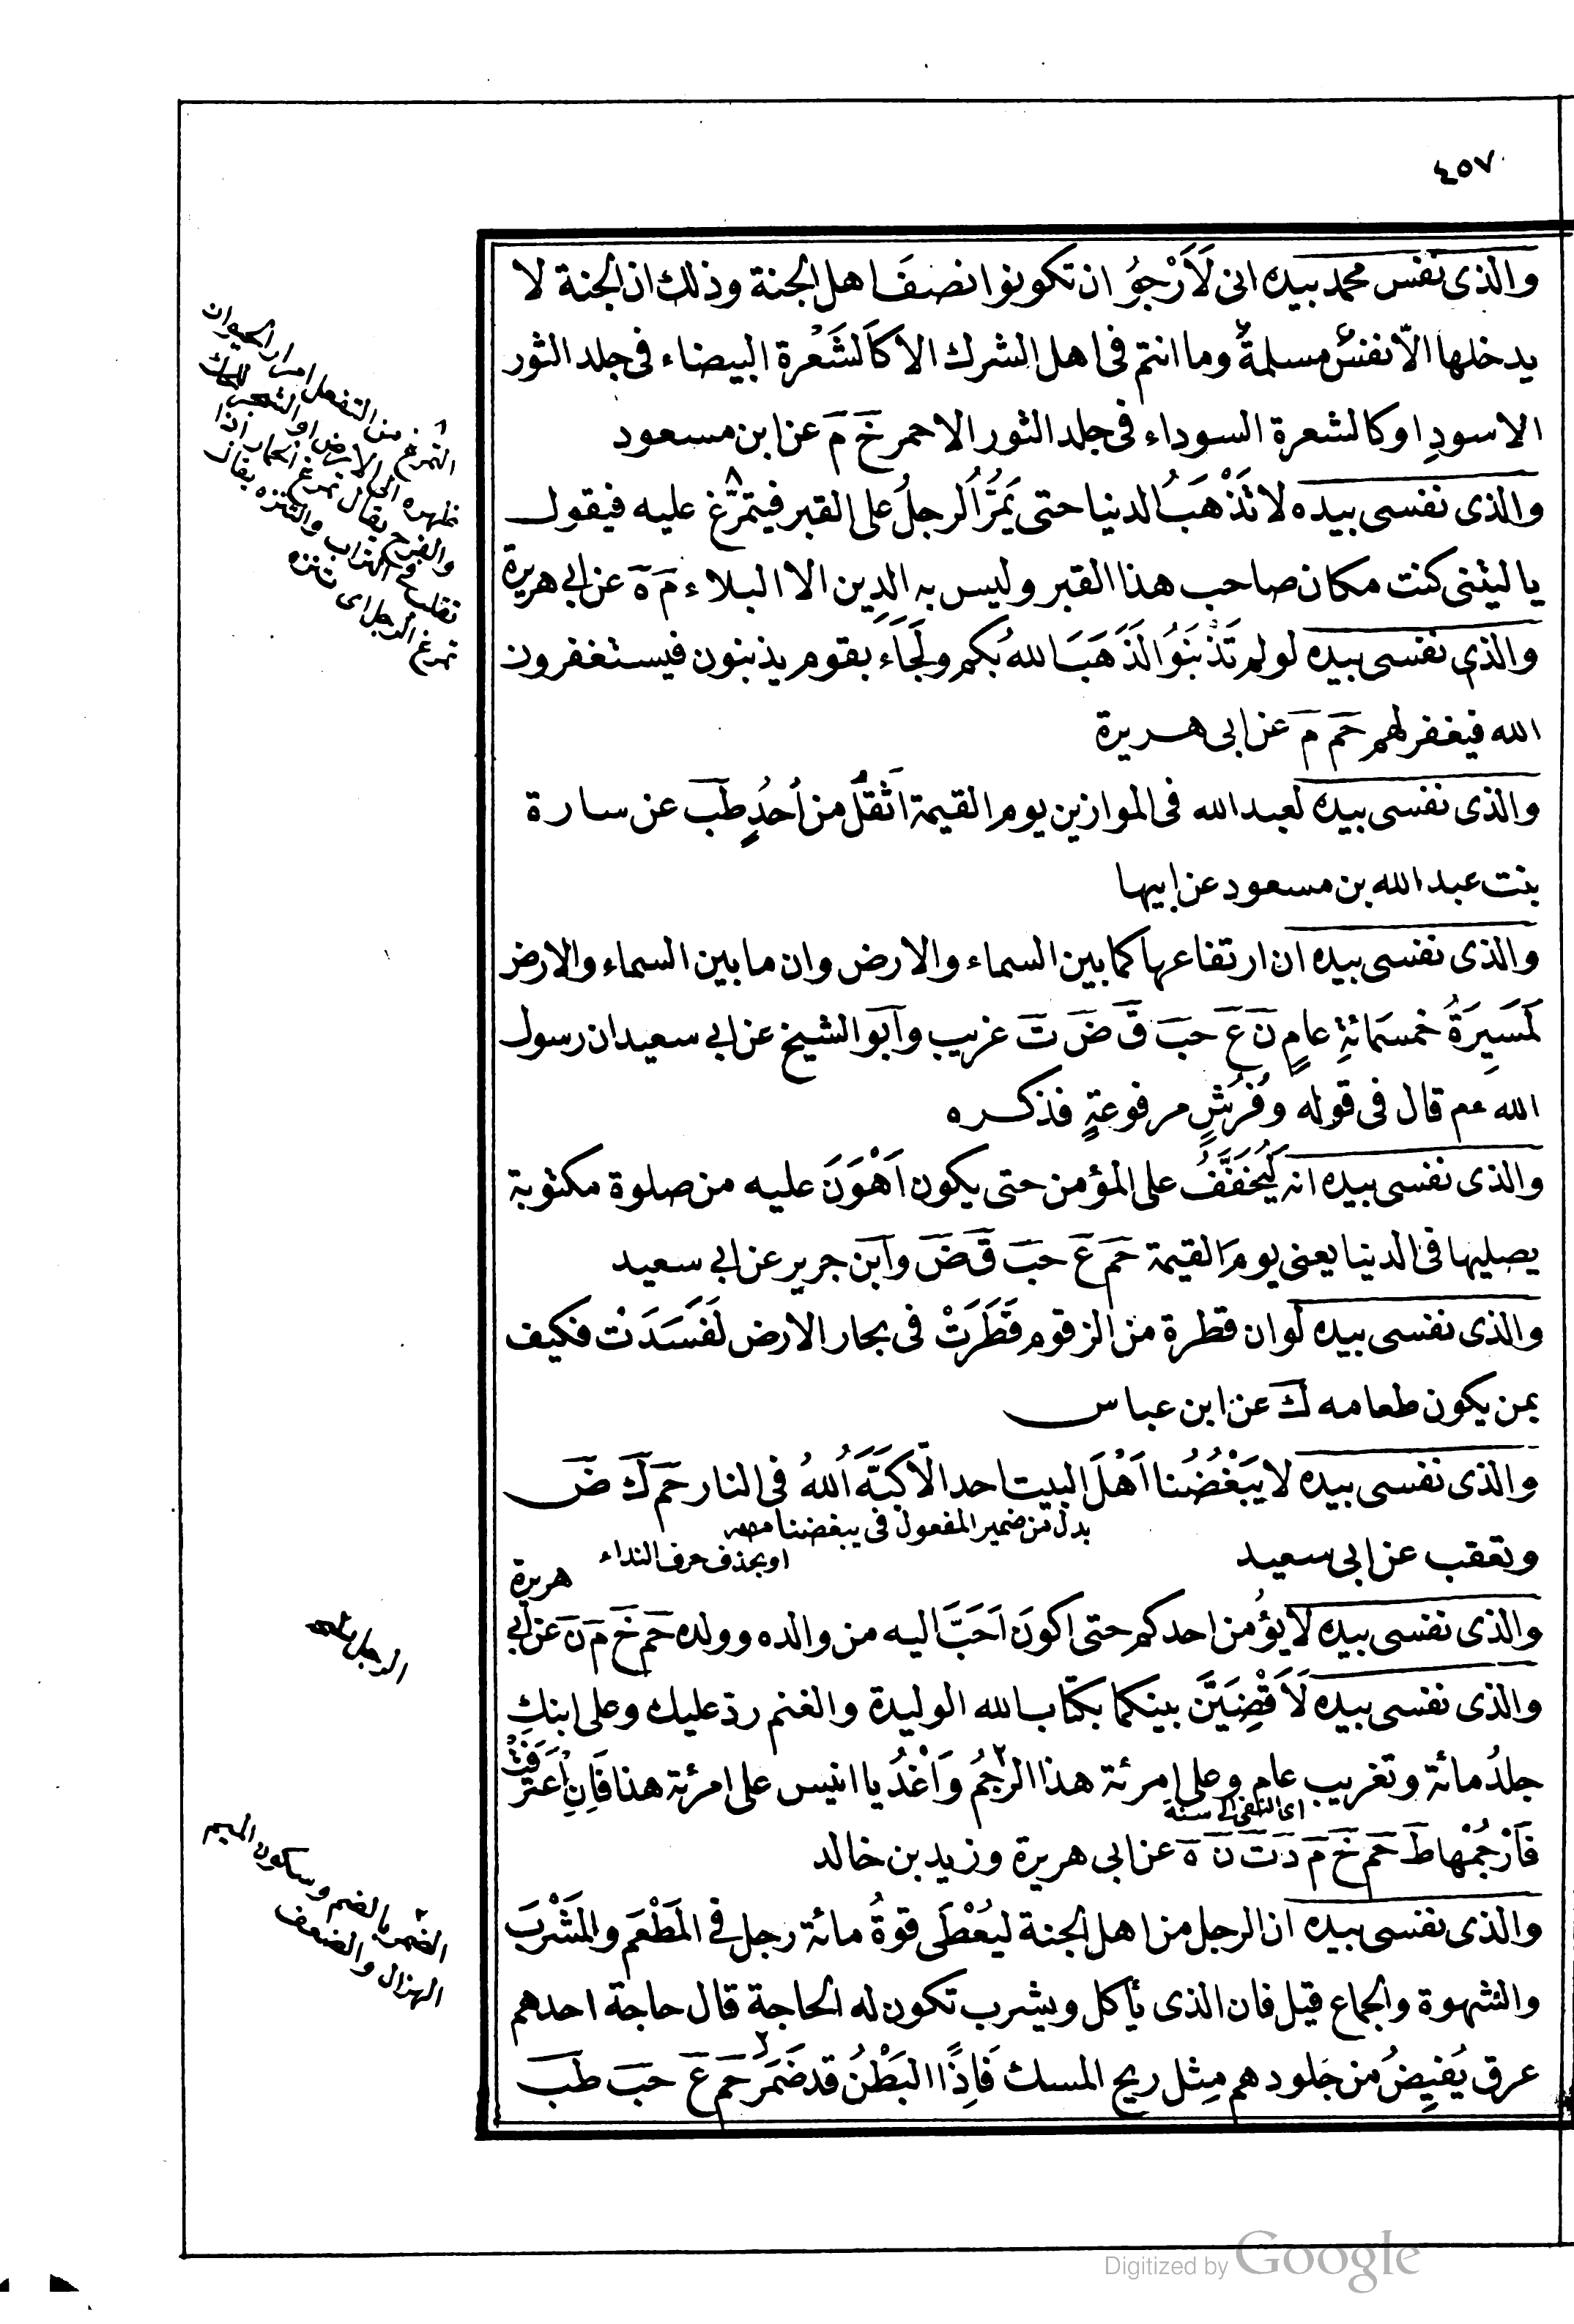 ٤٥٧
والذى نفس محمد بيده انى لَاَرْجُو ان تكونوا نصفَ اهل الجنة وذلك ان الجنة لا
يدخلها الّا نفسٌ مسلمةٌ وما انتم فى اهل الشرك الا كَالشَعْرة البيضاء فى جلد الثور
الاسودِ او كالشعرة السوداء فى جلد الثور الاحمر خَ مَ عن ابن مسعود
والذى نفسى بيده لا تَذْهَبُ الدنيا حتى يَمُرَّ الرجلُ على القبر فيتمرّغ عليه فيقول
يا ليتنى كنت مكان صاحب هذا القبر وليس به الدِين الا البلاء مَ هَ عن ابى هريرة
والذى نفسى بيده لو لم تَذْنبَوُا لَذَهَبَ اللهُ بكم ولَجَاَء بقوم يذنبون فيستغفرون
الله فيغفر لهم حَمَ مَ عن ابى هريرة
والذى نفسى بيده لعبد الله فى الموازين يوم القيمة اَثقلُ من اُحُدٍ طَبَ عن سارة
بنت عبد الله بن مسعود عن ابيها
والذى نفسى بيده ان ارتفاعها كما بين السماء والارض وان ما بين السماء والارض
لَمَسَيِرَةُ خمسمَائةِ عامٍ نَ عَ حبَ قَ ضَ تَ غريب وآبو الشيخ عن ابى سعيد ان رسول
الله عم قال فى قوله وفُرُشٍ مرفوعةٍ فذكره
والذى نفسى بيده انه لَيُخَفَّفُ على المؤمن حتى يكون اَهْوَنَ عليه من صلوة مكتوبة
يصليها فى الدنيا يعنى يومَ القيمة حَمَ عَ حبَ قَ ضَ وآبن جرير عن ابى سعيد
والذى نفسى بيده لَو ان قطرة من الزقوم قَطَرَتْ فى بحار الارض لَفَسَدَتْ فكيف
بمن يكون طعامه كَ عن ابن عباس
والذى نفسى بيده لا يَبْغُضُنا اَهْلَ البيت احد الّا كَبَّهُ اللهُ فى النار حَمَ كَ ضَ
بدل من ضمير المفعول فى يبغضنا
او بحذف حرف النداء
وتعقب عن ابى سعيد
هريرة
والذى نفسى بيده لا يؤُمن احدكم حتى اكونَ اَحَبَّ اليه من والده وولده حَم خَ مَ نَ عن ابى
والذى نفسى بيده لَاَقْضِيَنَّ بينكما بكتاب الله الوليدة والغنم ردّ عليك وعلى ابنكِ
جلدُ مائة وتغريب عام وعلى امرئة هذا الرجُمُ وَاغْدُ يا انيس على امرئة هذا فَاِنِ اعترفَتْ
اى النفى الى سنة
فَارْجُمْها طَ حَم خَ مَ دَ تَ نَ هَ عن ابى هريرة وزيد بن خالد
والذى نفسى بيده ان الرجل من اهل الجنة ليُعْطَى قوةُ مائة رجل فى المَطْعَم والمَشْرَبَ
والشهوة والجماع قيل فان الذى يأكل ويشرب تكون له الحاجة قال حاجة احدهم
عرق يُفيِضُ من جَلودهم مِثل ريح المسك فَاِذًا البَطْنُ قد ضَمَرَ حَم عَ حبَ طَبَ
التمرغ من التفعل امرار الحيوان
ظهره الى الارض او
والفرح يقال تمرغ الحمار اذا
تقلب فى التراب والتنزه يقال
تمرغ الرجل اى تنزه
الرجل
الضمر بالضم وسكون الميم
الهزال والضعف
Digitized by Google